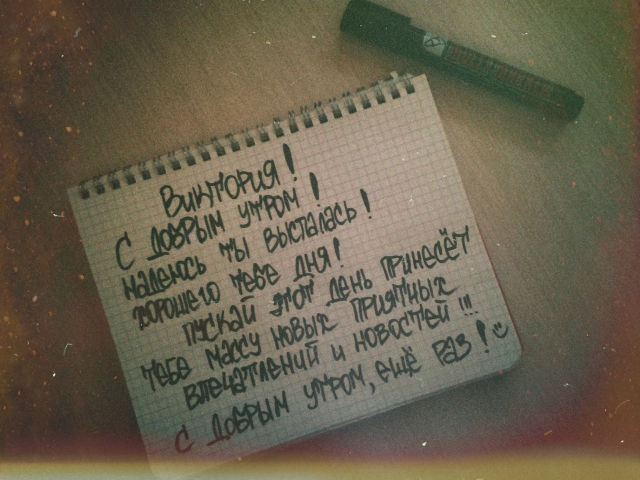 Виктория!
С добрым утром!
надеюсь ты высталась!
хорошего тебе дня!
пускай этот день принесёт
тебе массу новых приятных
впечатлений и новостей!!!
С добрым утром, ещё раз!